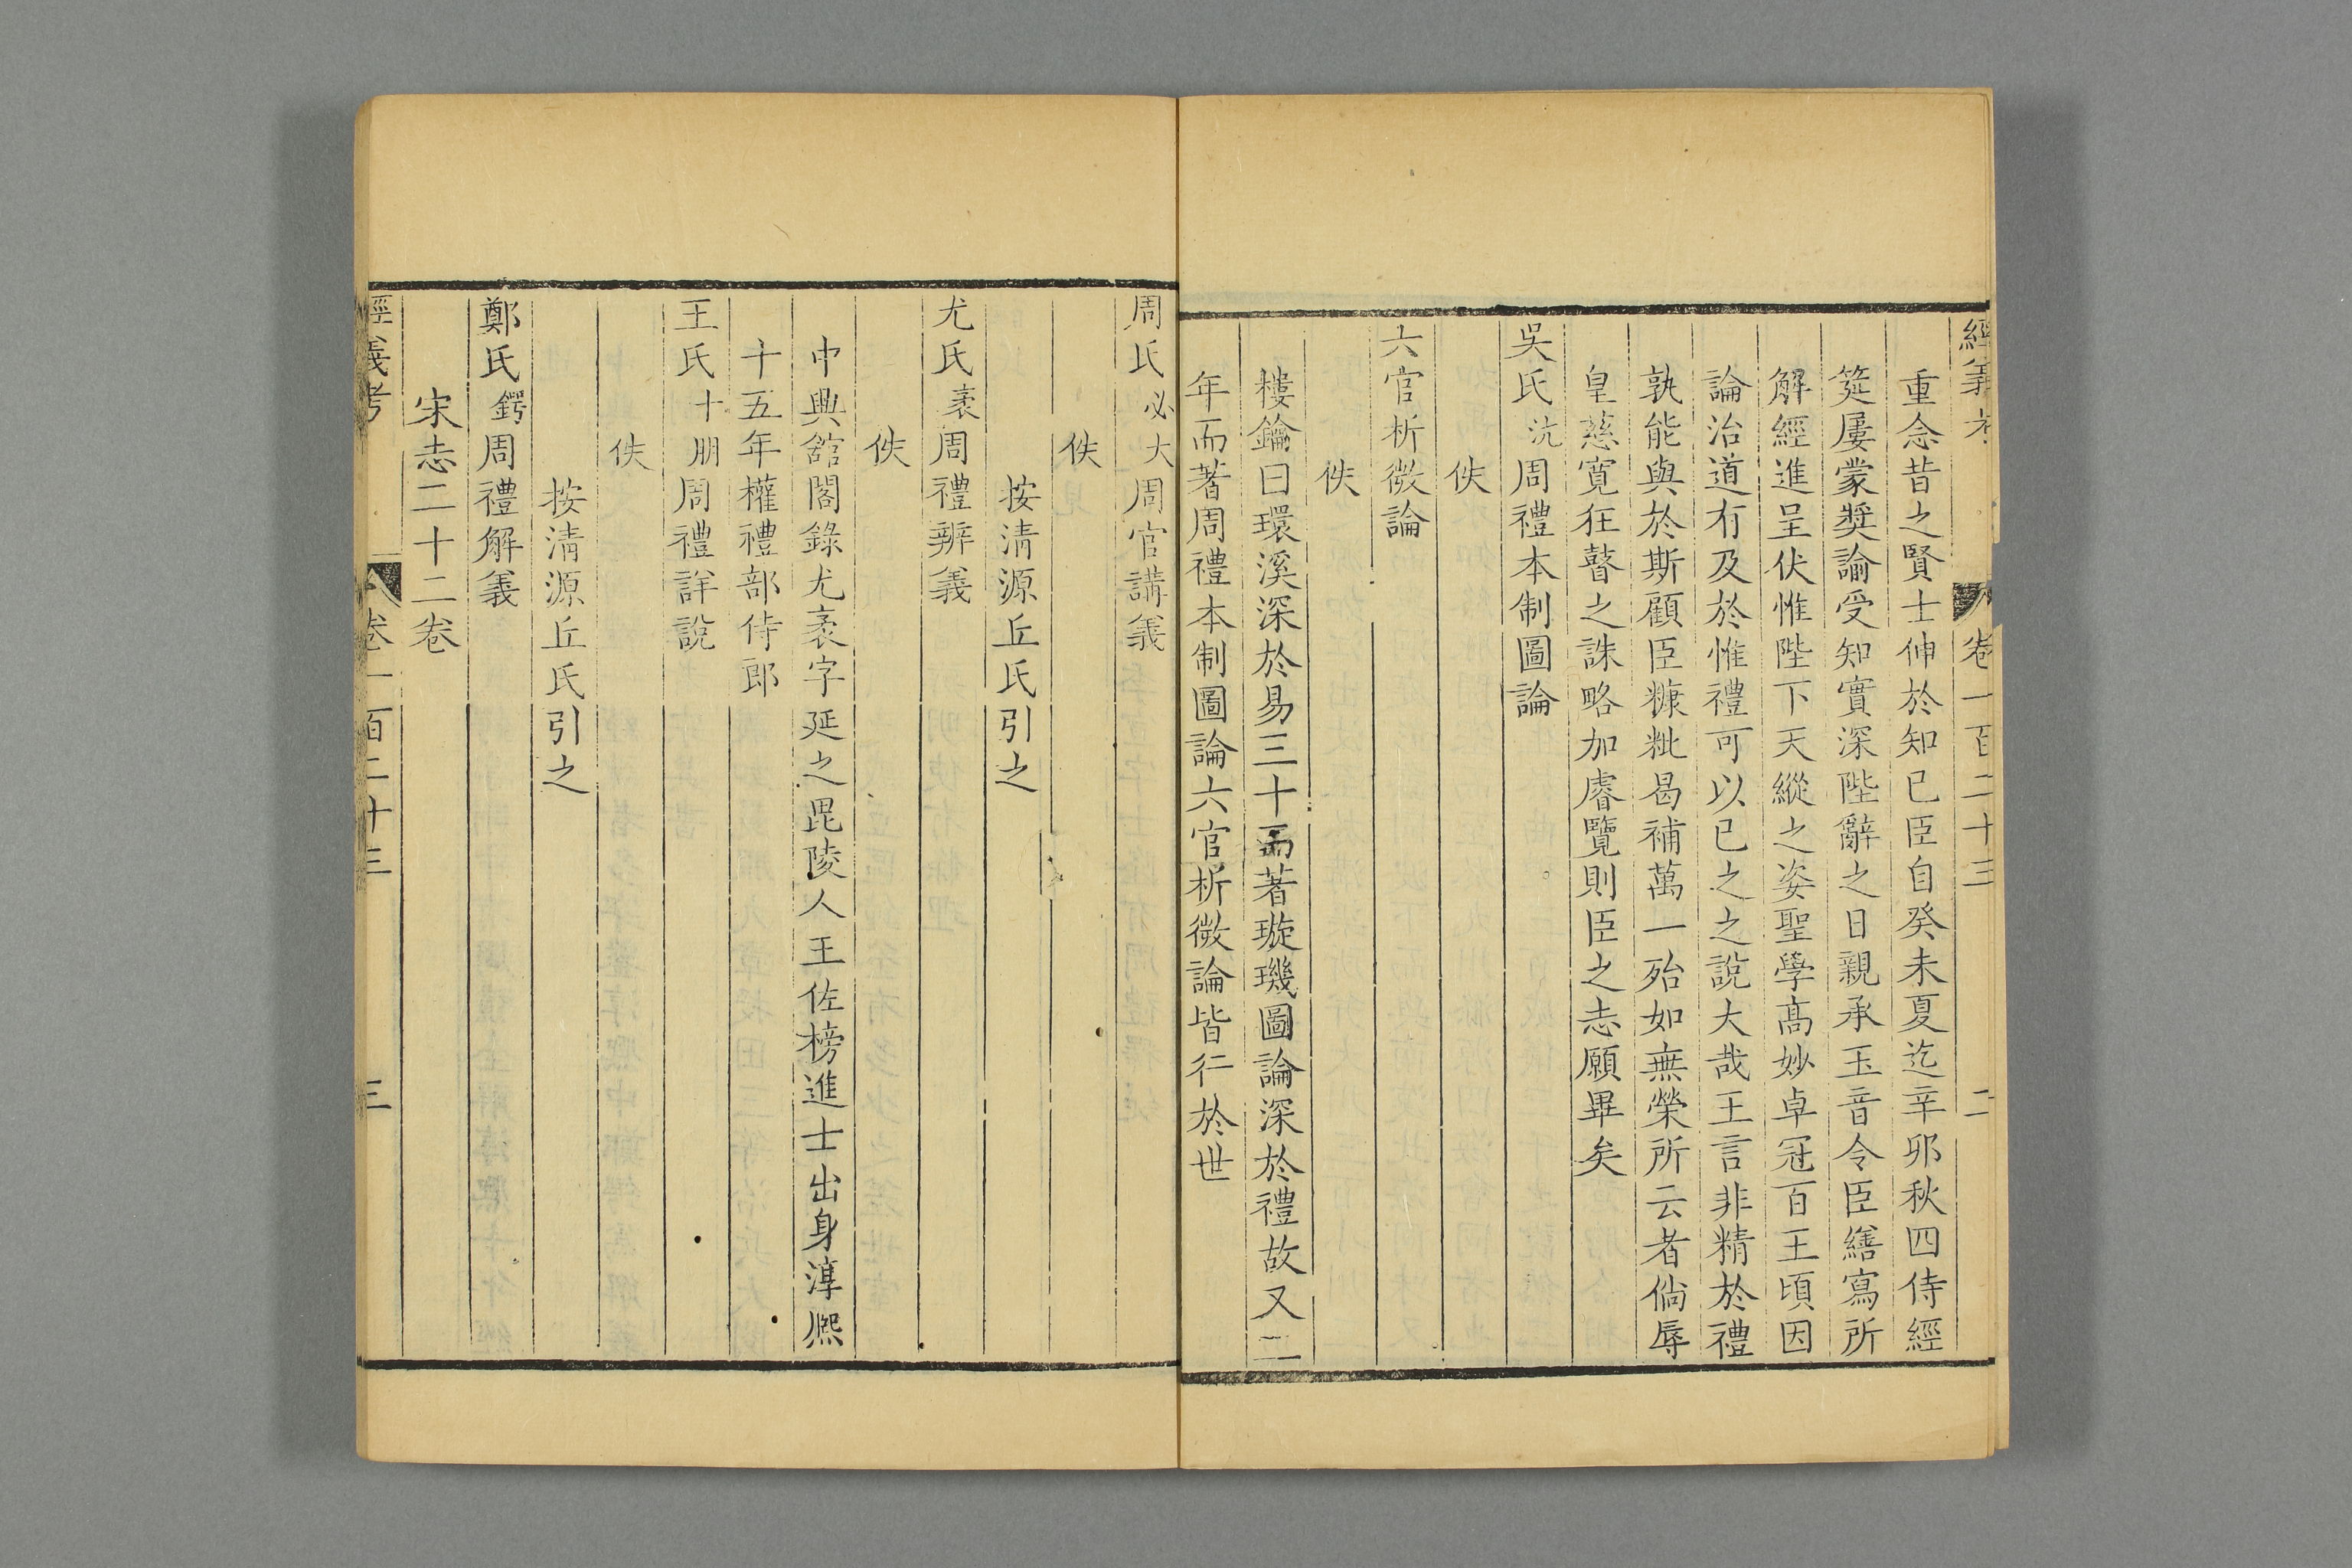 經義考 卷一百二十三 二
重念昔之賢士伸於知已臣自癸未夏迄辛卯秋四侍經
筵屢蒙奬諭受知實深陛辭之日親承玉音令臣繕寫所
解經進呈伏惟陛下天縱之姿聖學髙妙卓冠百王頃因
論治道有及於惟禮可以已之之說大哉王言非精於禮
孰能與於斯顧臣糠粃曷補萬一殆如無榮所云者倘辱
皇慈寛狂瞽之誅略加睿覽則臣之志願畢矣
吳氏沆周禮本制圖論
佚
六官析微論
佚
樓鑰曰環溪深於易三十而著璇璣圖論深於禮故又二
年而著周禮本制圖論六官析微論皆行於世
周氏必大周官講義
佚
按淸源丘氏引之
尤氏袤周禮辨義
佚
中興舘閣錄尤袤字延之毘陵人王佐榜進士出身淳熈
十五年權禮部侍郎
王氏十朋周禮詳說
佚
按淸源丘氏引之
鄭氏鍔周禮解義
宋志二十二卷
經義考 卷一百二十三 三